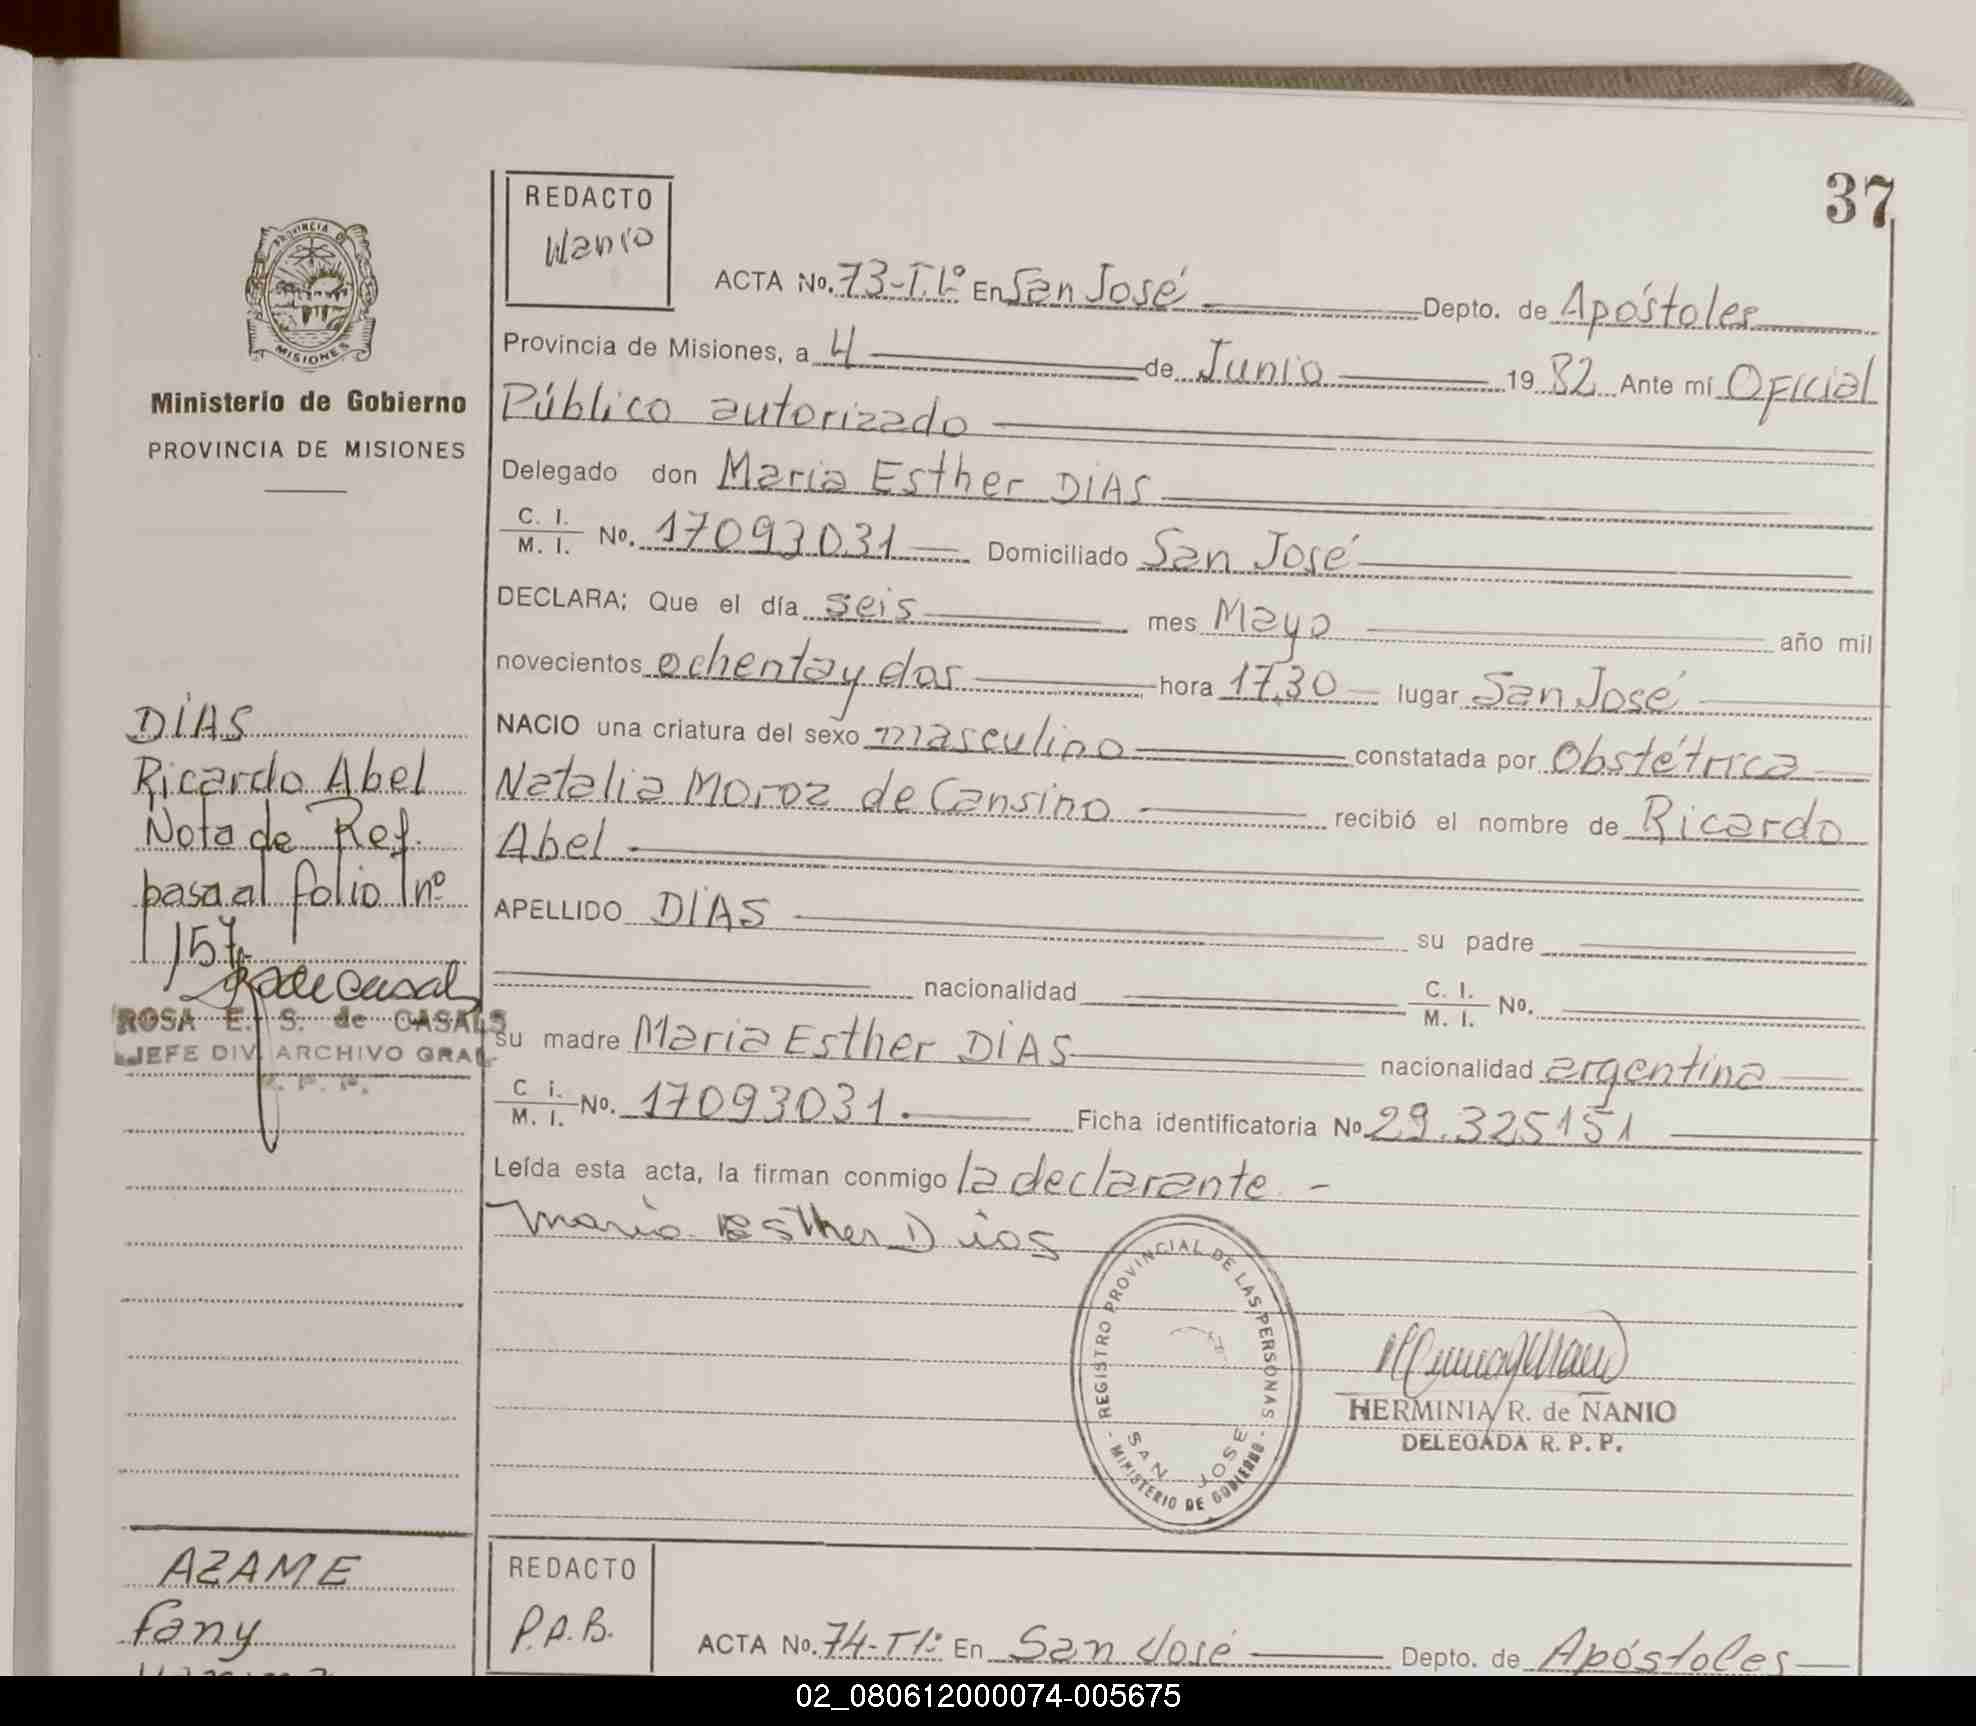 37
REDACTO
Nanio
PROVINCIA DE
MISIONES
Ministerio de Gobierno
PROVINCIA DE MISIONES
ACTA No. 73-T.1º En San José Depto. de Apóstoles
Provincia de Misiones, a 4 de Junio 19 82 Ante mí Oficial
Público autorizado
Delegado don Maria Esther DIAS
C. I.
M. I. No. 17093031 Domiciliado San José
DECLARA: Que el día seis mes Mayo año mil
novecientos ochenta y dos hora 17,30 lugar San José
NACIO una criatura del sexo masculino constatada por Obstétrica
Natalia Moroz de Cansino recibió el nombre de Ricardo
Abel
APELLIDO DIAS su padre
nacionalidad C. I.
M. I. No.
su madre Maria Esther DIAS nacionalidad argentina
C i.
M. I. No. 17093031. Ficha identificatoria No 29.325151
Leída esta acta, la firman conmigo la declarante. -
Maria Esther Dias
REGISTRO PROVINCIAL DE LAS PERSONAS
SAN JOSE
- MINISTERIO DE GOBIERNO -
HERMINIA R. de NANIO
DELEGADA R. P. P.
DIAS
Ricardo Abel
Nota de Ref.
pasa al folio nº
157
ROSA E. S. de CASALS
JEFE DIV. ARCHIVO GRAL
R. P. P.
AZAME
Fany
REDACTO
P.A.B.
ACTA No. 74-T1º En San José Depto. de Apóstoles
02_080612000074-005675